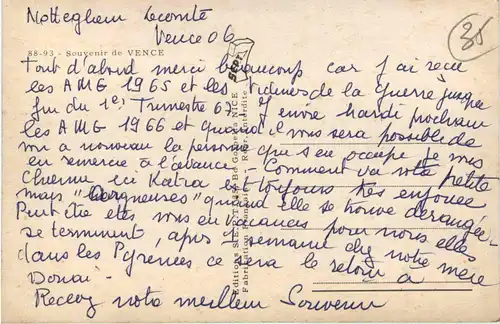 Notteghem Lecomte
Vence 06
38
88-93 - Souvenir de VENCE
Tout d'abord merci beaucoup car j'ai reçu
les AMG 1965 et les de la Guerre jusque
fin du 1er Trimestre 6 J'envoie mardi prochain
les AMG 1966 et quand il vous sera possible de
m'a nouveau la personne qui s'en occupe je vous
en remercie à l'avance. Comment va votre petite
chienne ici Katia est toujours très enjouée
mais "Hargneuses" quand elle se trouve dérangée.
Peut être êtes vous en vacances pour nous elles
se terminent, après 1 semaine chez notre mère
dans les Pyrénées ce sera le retour à
Douai.
Recevez notre meilleur Souvenir
Editions S.E.P.T.
NICE
Fabrication Française - Reproduction Interdite
SEPT